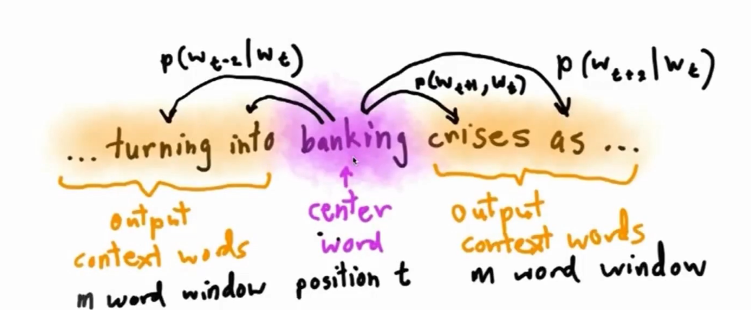 p(w t-2 | w t)
p(w t+1, w t)
p(w t+2 | w t)
... turning into banking crises as ...
output
context words
m word window
center
word
position t
output
context words
m word window